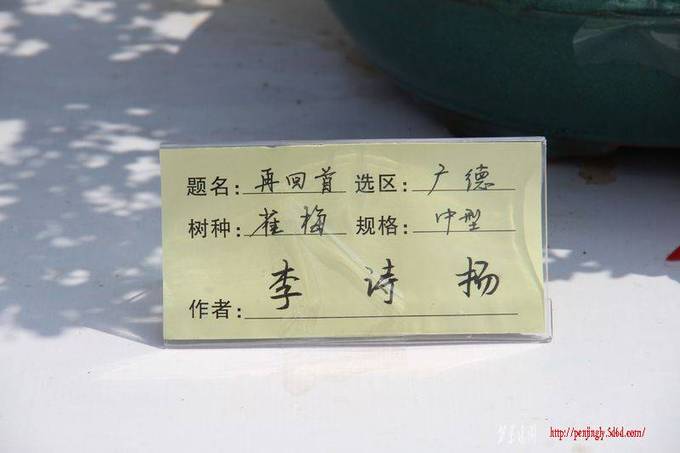 题名：再回首 选区：广德
树种：雀梅 规格：中型
作者：李诗扬
http://penjingly.5d6d.com/